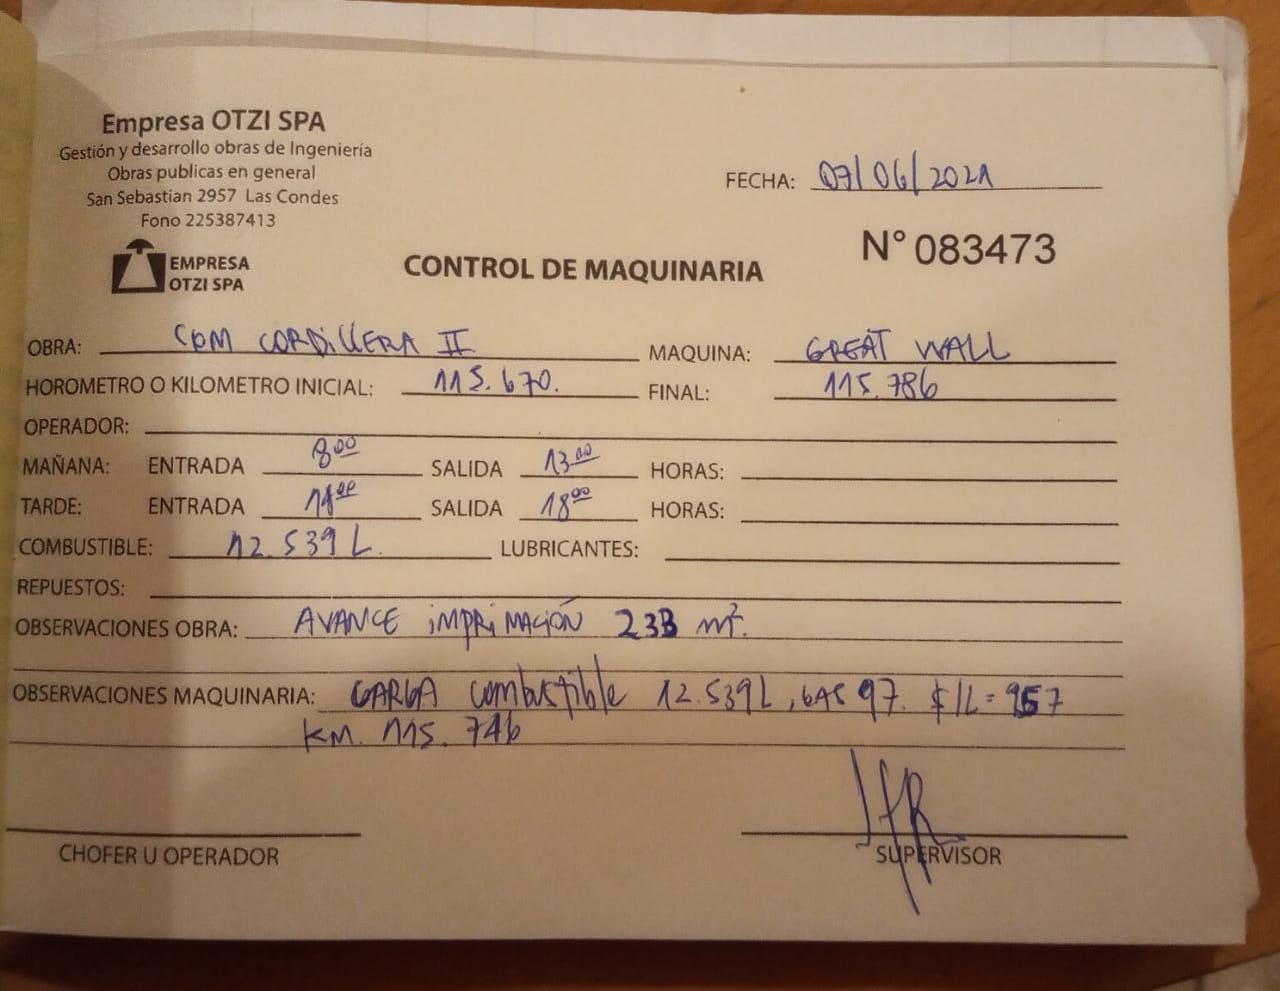 Empresa OTZI SPA
Gestión y desarrollo obras de Ingeniería
Obras publicas en general
San Sebastian 2957 Las Condes
Fono 225387413
EMPRESA
OTZI SPA
FECHA: 07/06/2021
N° 083473
CONTROL DE MAQUINARIA
OBRA: COM CORDILLERA II MAQUINA: GREAT WALL
HOROMETRO O KILOMETRO INICIAL: 115.670. FINAL: 115.786
OPERADOR:
MAÑANA: ENTRADA 8:00 SALIDA 13:00 HORAS:
TARDE: ENTRADA 14:00 SALIDA 18:00 HORAS:
COMBUSTIBLE: 12.539 L. LUBRICANTES:
REPUESTOS:
OBSERVACIONES OBRA: AVANCE IMPRIMACIÓN 233 m².
OBSERVACIONES MAQUINARIA: CARGA combustible 12.539L, GAS 97. $/L= 957
KM. 115.746
CHOFER U OPERADOR
SUPERVISOR